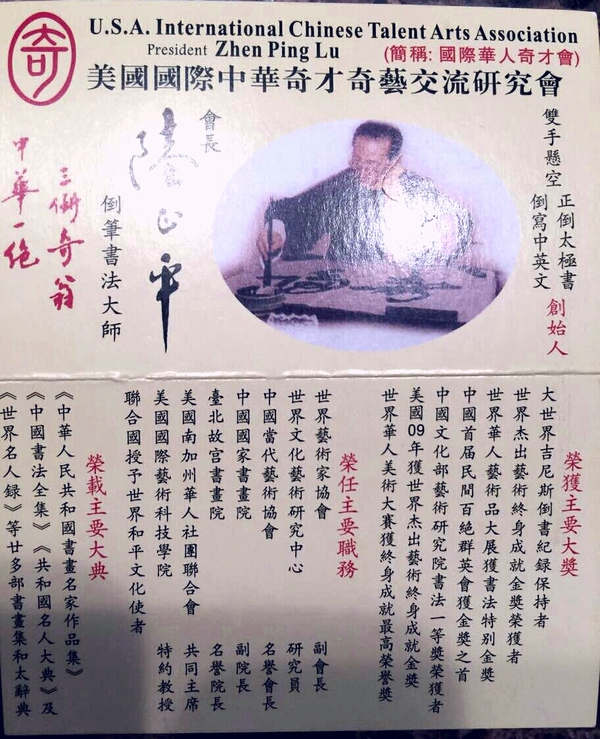 奇
U.S.A. International Chinese Talent Arts Association
President Zhen Ping Lu
(簡稱: 國際華人奇才會)
美國國際中華奇才奇藝交流研究會
雙手懸空
正倒太極書
倒寫中英文
創始人
會長
陸正平
倒筆書法大師
三倒奇翁
中華一絕
榮獲主要大獎
大世界吉尼斯倒書紀錄保持者
世界杰出藝術終身成就金獎榮獲者
中國首届民間百絕群英會獲金獎之首
世界華人藝術品大展獲書法特别金獎
中國文化部藝術研究院書法一等獎榮獲者
美國09年獲世界杰出藝術終身成就金獎
世界華人美術大賽獲終身成就最高榮譽獎
榮任主要職務
世界藝術家協會 副會長
世界文化藝術研究中心 研究員
中國當代藝術協會 名譽會長
中國國家書畫院 副院長
臺北故宫書畫院 名譽院長
美國南加州華人社團聯合會 共同主席
美國國際藝術科技學院 特約教授
聯合國授予世界和平文化使者
榮載主要大典
《中華人民共和國書畫名家作品集》
《中國書法全集》《共和國名人大典》及
《世界名人録》等廿多部書畫集和太辭典